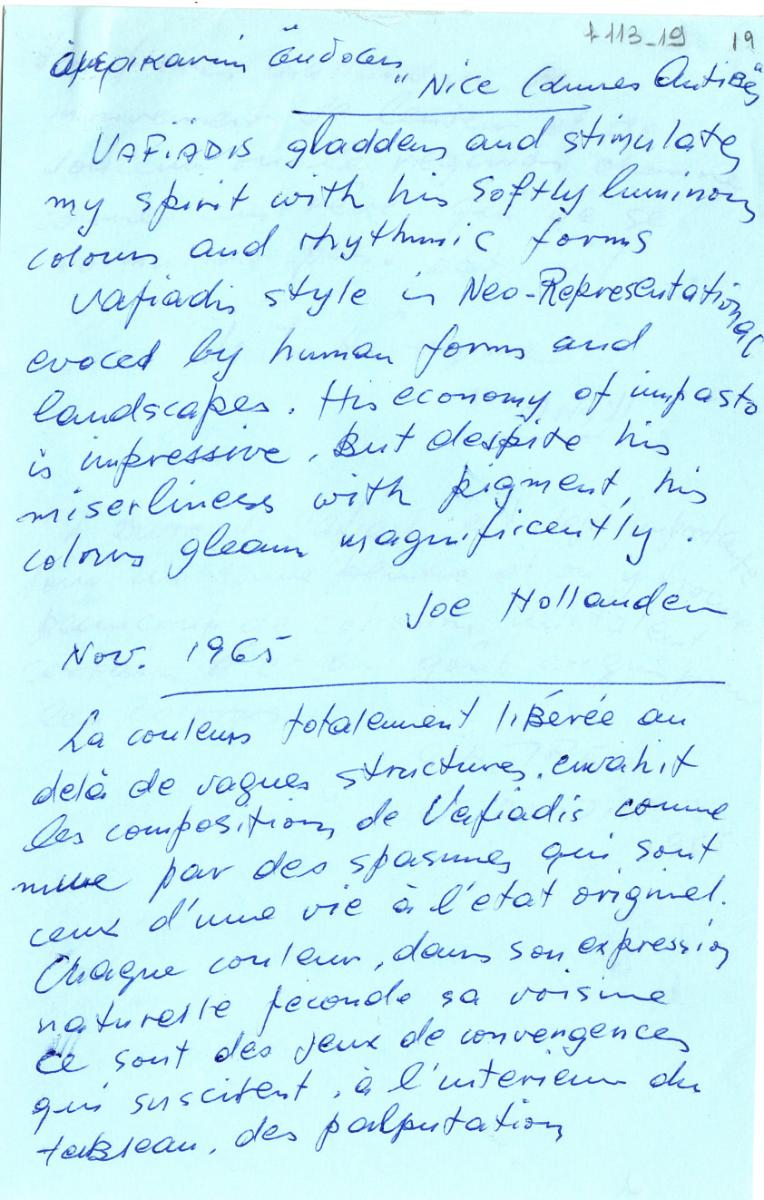 7113-19 19
ἀμερικανικη ἔκδοσις "Nice Cannes Antibes"
VAFIADIS gladdens and stimulates
my spirit with his softly luminous
colours and rhythmic forms
Vafiadis style is Neo-Representational
evoced by human forms and
landscapes. His economy of impasto
is impressive. But despite his
miserliness with pigment, his
colours gleam magnificently.
Joe Hollander
Nov. 1965
La couleurs totalement libérée au
delà de vagues structures, envahit
les compositions de Vafiadis comme
mue par des spasmes qui sont
ceux d'une vie à l'etat originel.
Chaque couleur, dans son expression
naturelle féconde sa voisine
ce sont des jeux de convergences
qui suscitent, à l'interieur du
tableau, des palputations